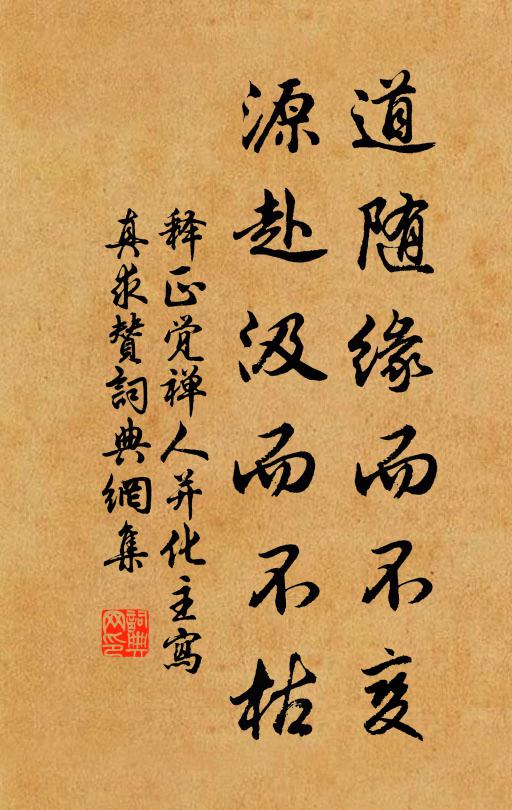 道随缘而不变
源赴汲而不枯
释正觉禅人并化主寫
真求赞詞典網集
詞典网印